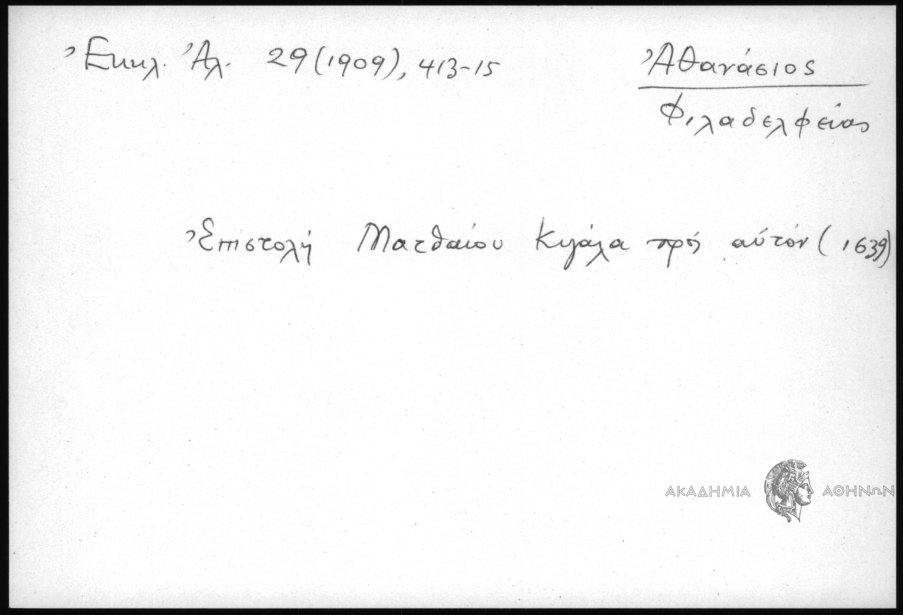 Ἐκκλ. Ἀλ. 29 (1909), 413-15
Ἀθανάσιος
Φιλαδελφείας
Ἐπιστολή Ματθαίου Κιγάλα πρός αὐτόν (1639)
ΑΚΑΔΗΜΙΑ ΑΘΗΝΩΝ